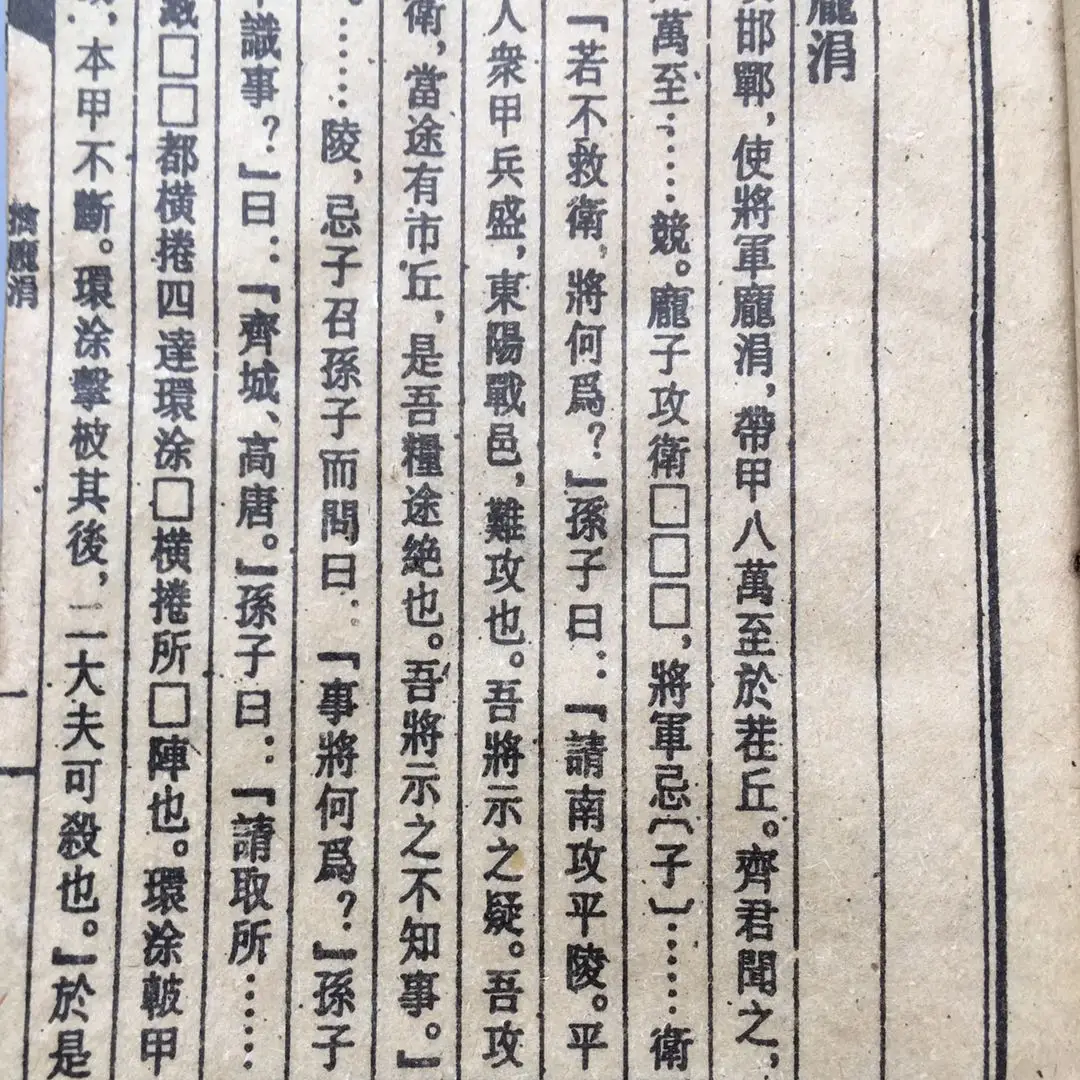 龐涓
邯鄲,使將軍龐涓,帶甲八萬至於茬丘。齊君聞之,
萬至……競。龐子攻衛□□□,將軍忌〔子〕……衛
『若不救衛,將何爲?』孫子曰:『請南攻平陵。平
人衆甲兵盛,東陽戰邑,難攻也。吾將示之疑。吾攻
衛,當途有市丘,是吾糧途絶也。吾將示之不知事。』
。……陵,忌子召孫子而問曰:『事將何爲?』孫子
識事?』曰:『齊城、高唐。』孫子曰:『請取所……
□□都橫捲四達環涂□橫捲所□陣也。環涂鞁甲
,本甲不斷。環涂擊柀其後,二大夫可殺也。』於是
擒龐涓
一